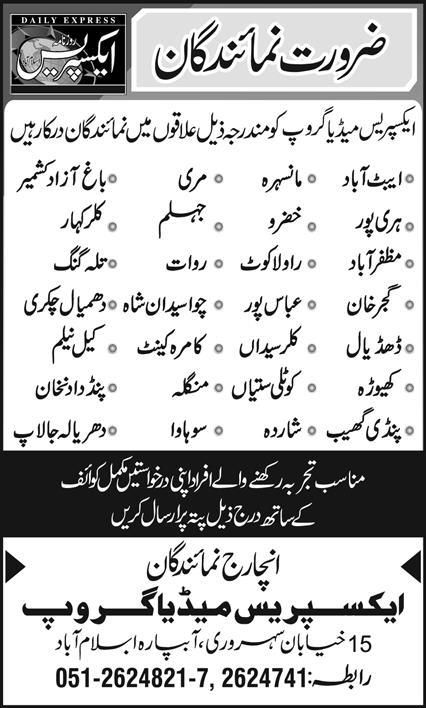 DAILY EXPRESS
روزنامہ
ایکسپریس
ضرورت نمائندگان
ایکسپریس میڈیا گروپ کو مندرجہ ذیل علاقوں میں نمائندگان درکار ہیں
• ایبٹ آباد • مانسہرہ • مری • باغ آزاد کشمیر
• ہری پور • خضرو • جہلم • کلر کہار
• مظفر آباد • راولا کوٹ • روات • تلہ گنگ
• گجر خان • عباس پور • چواسیدان شاہ • دھمیال چکری
• ڈھڈیال • کلر سیداں • کامرہ کینٹ • کیل نیلم
• کھیوڑہ • کوٹلی ستیاں • منگلہ • پنڈ دادنخان
• پنڈی گھیب • شاردہ • سوہاوا • دھریالہ جالاپ
مناسب تجربہ رکھنے والے افراد اپنی درخواستیں مکمل کوائف
کے ساتھ درج ذیل پتہ پر ارسال کریں
انچارج نمائندگان
ایکسپریس میڈیا گروپ
15 خیابان سہروری، آبپارہ اسلام آباد
رابطہ: 051-2624821-7, 2624741